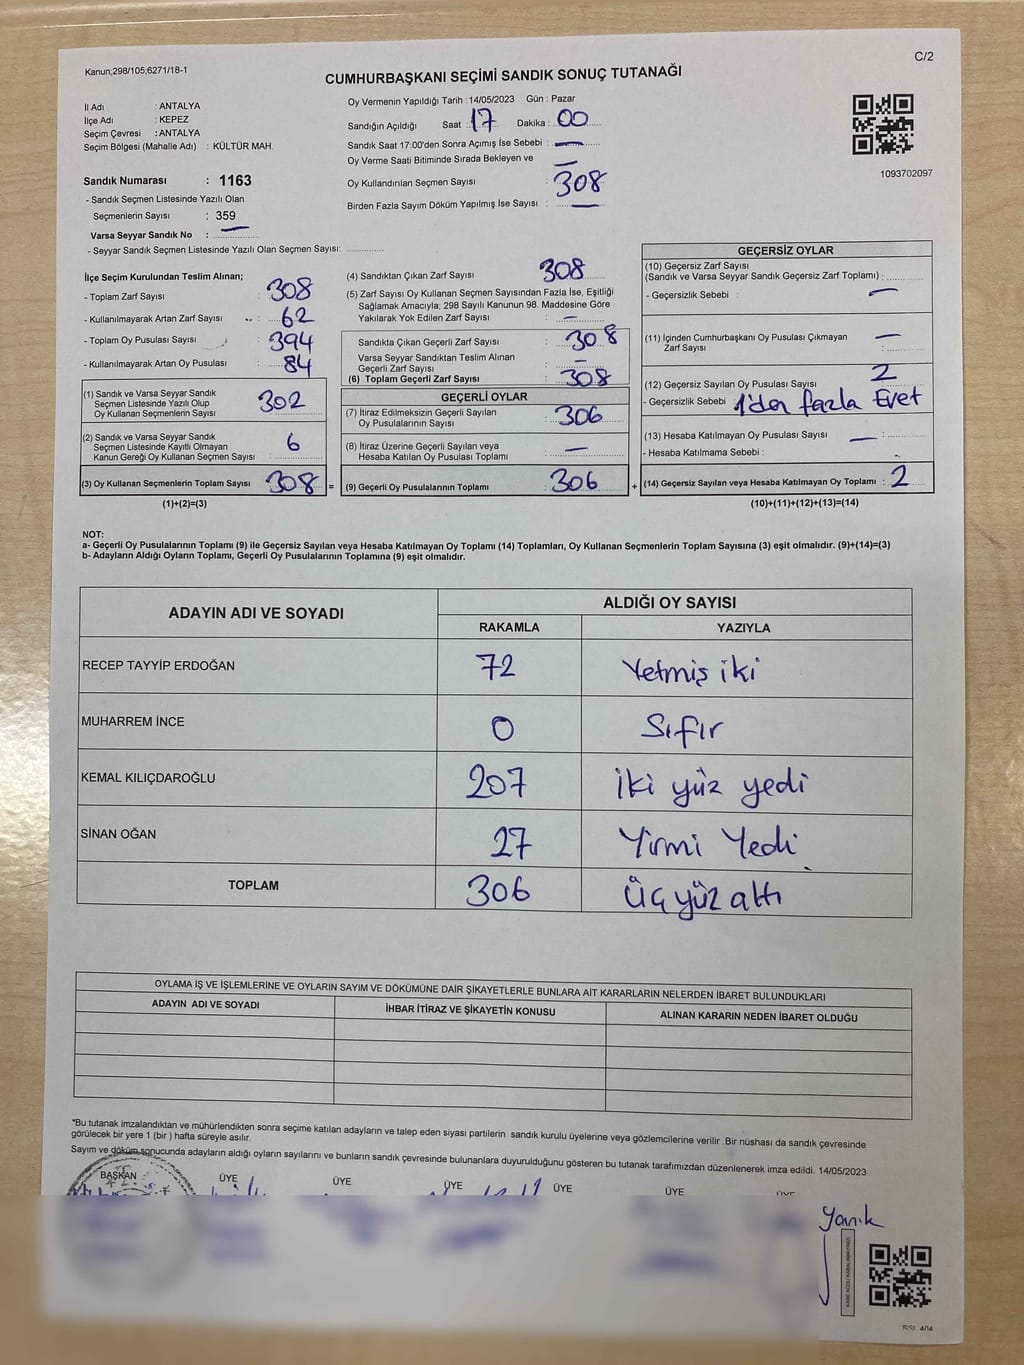 Kanun;298/105;6271/18-1
C/2
CUMHURBAŞKANI SEÇİMİ SANDIK SONUÇ TUTANAĞI
İl Adı : ANTALYA
İlçe Adı : KEPEZ
Seçim Çevresi : ANTALYA
Seçim Bölgesi (Mahalle Adı) : KÜLTÜR MAH.
Sandık Numarası : 1163
- Sandık Seçmen Listesinde Yazılı Olan
Seçmenlerin Sayısı : 359
Varsa Seyyar Sandık No :
- Seyyar Sandık Seçmen Listesinde Yazılı Olan Seçmen Sayısı:
Oy Vermenin Yapıldığı Tarih : 14/05/2023 Gün : Pazar
Sandığın Açıldığı Saat : 17 Dakika : 00
Sandık Saat 17:00'den Sonra Açımış İse Sebebi : —
Oy Verme Saati Bitiminde Sırada Bekleyen ve —
Oy Kullandırılan Seçmen Sayısı : 308
Birden Fazla Sayım Döküm Yapılmış İse Sayısı : —
1093702097
İlçe Seçim Kurulundan Teslim Alınan;
- Toplam Zarf Sayısı : 308
- Kullanılmayarak Artan Zarf Sayısı : 62
- Toplam Oy Pusulası Sayısı : 394
- Kullanılmayarak Artan Oy Pusulası : 84
(1) Sandık ve Varsa Seyyar Sandık
Seçmen Listesinde Yazılı Olup
Oy Kullanan Seçmenlerin Sayısı : 302
(2) Sandık ve Varsa Seyyar Sandık
Seçmen Listesinde Kayıtlı Olmayan
Kanun Gereği Oy Kullanan Seçmen Sayısı : 6
(3) Oy Kullanan Seçmenlerin Toplam Sayısı : 308 =
(1)+(2)=(3)
(4) Sandıktan Çıkan Zarf Sayısı : 308
(5) Zarf Sayısı Oy Kullanan Seçmen Sayısından Fazla İse, Eşitliği
Sağlamak Amacıyla; 298 Sayılı Kanunun 98. Maddesine Göre
Yakılarak Yok Edilen Zarf Sayısı : —
Sandıkta Çıkan Geçerli Zarf Sayısı : 308
Varsa Seyyar Sandıktan Teslim Alınan
Geçerli Zarf Sayısı : —
(6) Toplam Geçerli Zarf Sayısı : 308
GEÇERLİ OYLAR
(7) İtiraz Edilmeksizin Geçerli Sayılan
Oy Pusulalarının Sayısı : 306
(8) İtiraz Üzerine Geçerli Sayılan veya
Hesaba Katılan Oy Pusulası Toplamı : —
(9) Geçerli Oy Pusulalarının Toplamı : 306 +
GEÇERSİZ OYLAR
(10) Geçersiz Zarf Sayısı
(Sandık ve Varsa Seyyar Sandık Geçersiz Zarf Toplamı) :
- Geçersizlik Sebebi : —
(11) İçinden Cumhurbaşkanı Oy Pusulası Çıkmayan —
Zarf Sayısı :
(12) Geçersiz Sayılan Oy Pusulası Sayısı : 2
- Geçersizlik Sebebi 1'den fazla Evet
(13) Hesaba Katılmayan Oy Pusulası Sayısı — :
- Hesaba Katılmama Sebebi :
(14) Geçersiz Sayılan veya Hesaba Katılmayan Oy Toplamı : 2
(10)+(11)+(12)+(13)=(14)
NOT:
a- Geçerli Oy Pusulalarının Toplamı (9) ile Geçersiz Sayılan veya Hesaba Katılmayan Oy Toplamı (14) Toplamları, Oy Kullanan Seçmenlerin Toplam Sayısına (3) eşit olmalıdır. (9)+(14)=(3)
b- Adayların Aldığı Oyların Toplamı, Geçerli Oy Pusulalarının Toplamına (9) eşit olmalıdır.
ADAYIN ADI VE SOYADI
ALDIĞI OY SAYISI
RAKAMLA YAZIYLA
RECEP TAYYİP ERDOĞAN 72 Yetmiş iki
MUHARREM İNCE 0 Sıfır
KEMAL KILIÇDAROĞLU 207 iki yüz yedi
SİNAN OĞAN 27 Yirmi Yedi
TOPLAM 306 Üç yüz altı
OYLAMA İŞ VE İŞLEMLERİNE VE OYLARIN SAYIM VE DÖKÜMÜNE DAİR ŞİKAYETLERLE BUNLARA AİT KARARLARIN NELERDEN İBARET BULUNDUKLARI
ADAYIN ADI VE SOYADI İHBAR İTİRAZ VE ŞİKAYETİN KONUSU ALINAN KARARIN NEDEN İBARET OLDUĞU
*Bu tutanak imzalandıktan ve mühürlendikten sonra seçime katılan adayların ve talep eden siyasi partilerin sandık kurulu üyelerine veya gözlemcilerine verilir .Bir nüshası da sandık çevresinde
görülecek bir yere 1 (bir ) hafta süreyle asılır.
Sayım ve döküm sonucunda adayların aldığı oyların sayılarını ve bunların sandık çevresinde bulunanlara duyurulduğunu gösteren bu tutanak tarafımızdan düzenlenerek imza edildi. 14/05/2023
BAŞKAN ÜYE ÜYE ÜYE ÜYE ÜYE ÜYE
Yanık